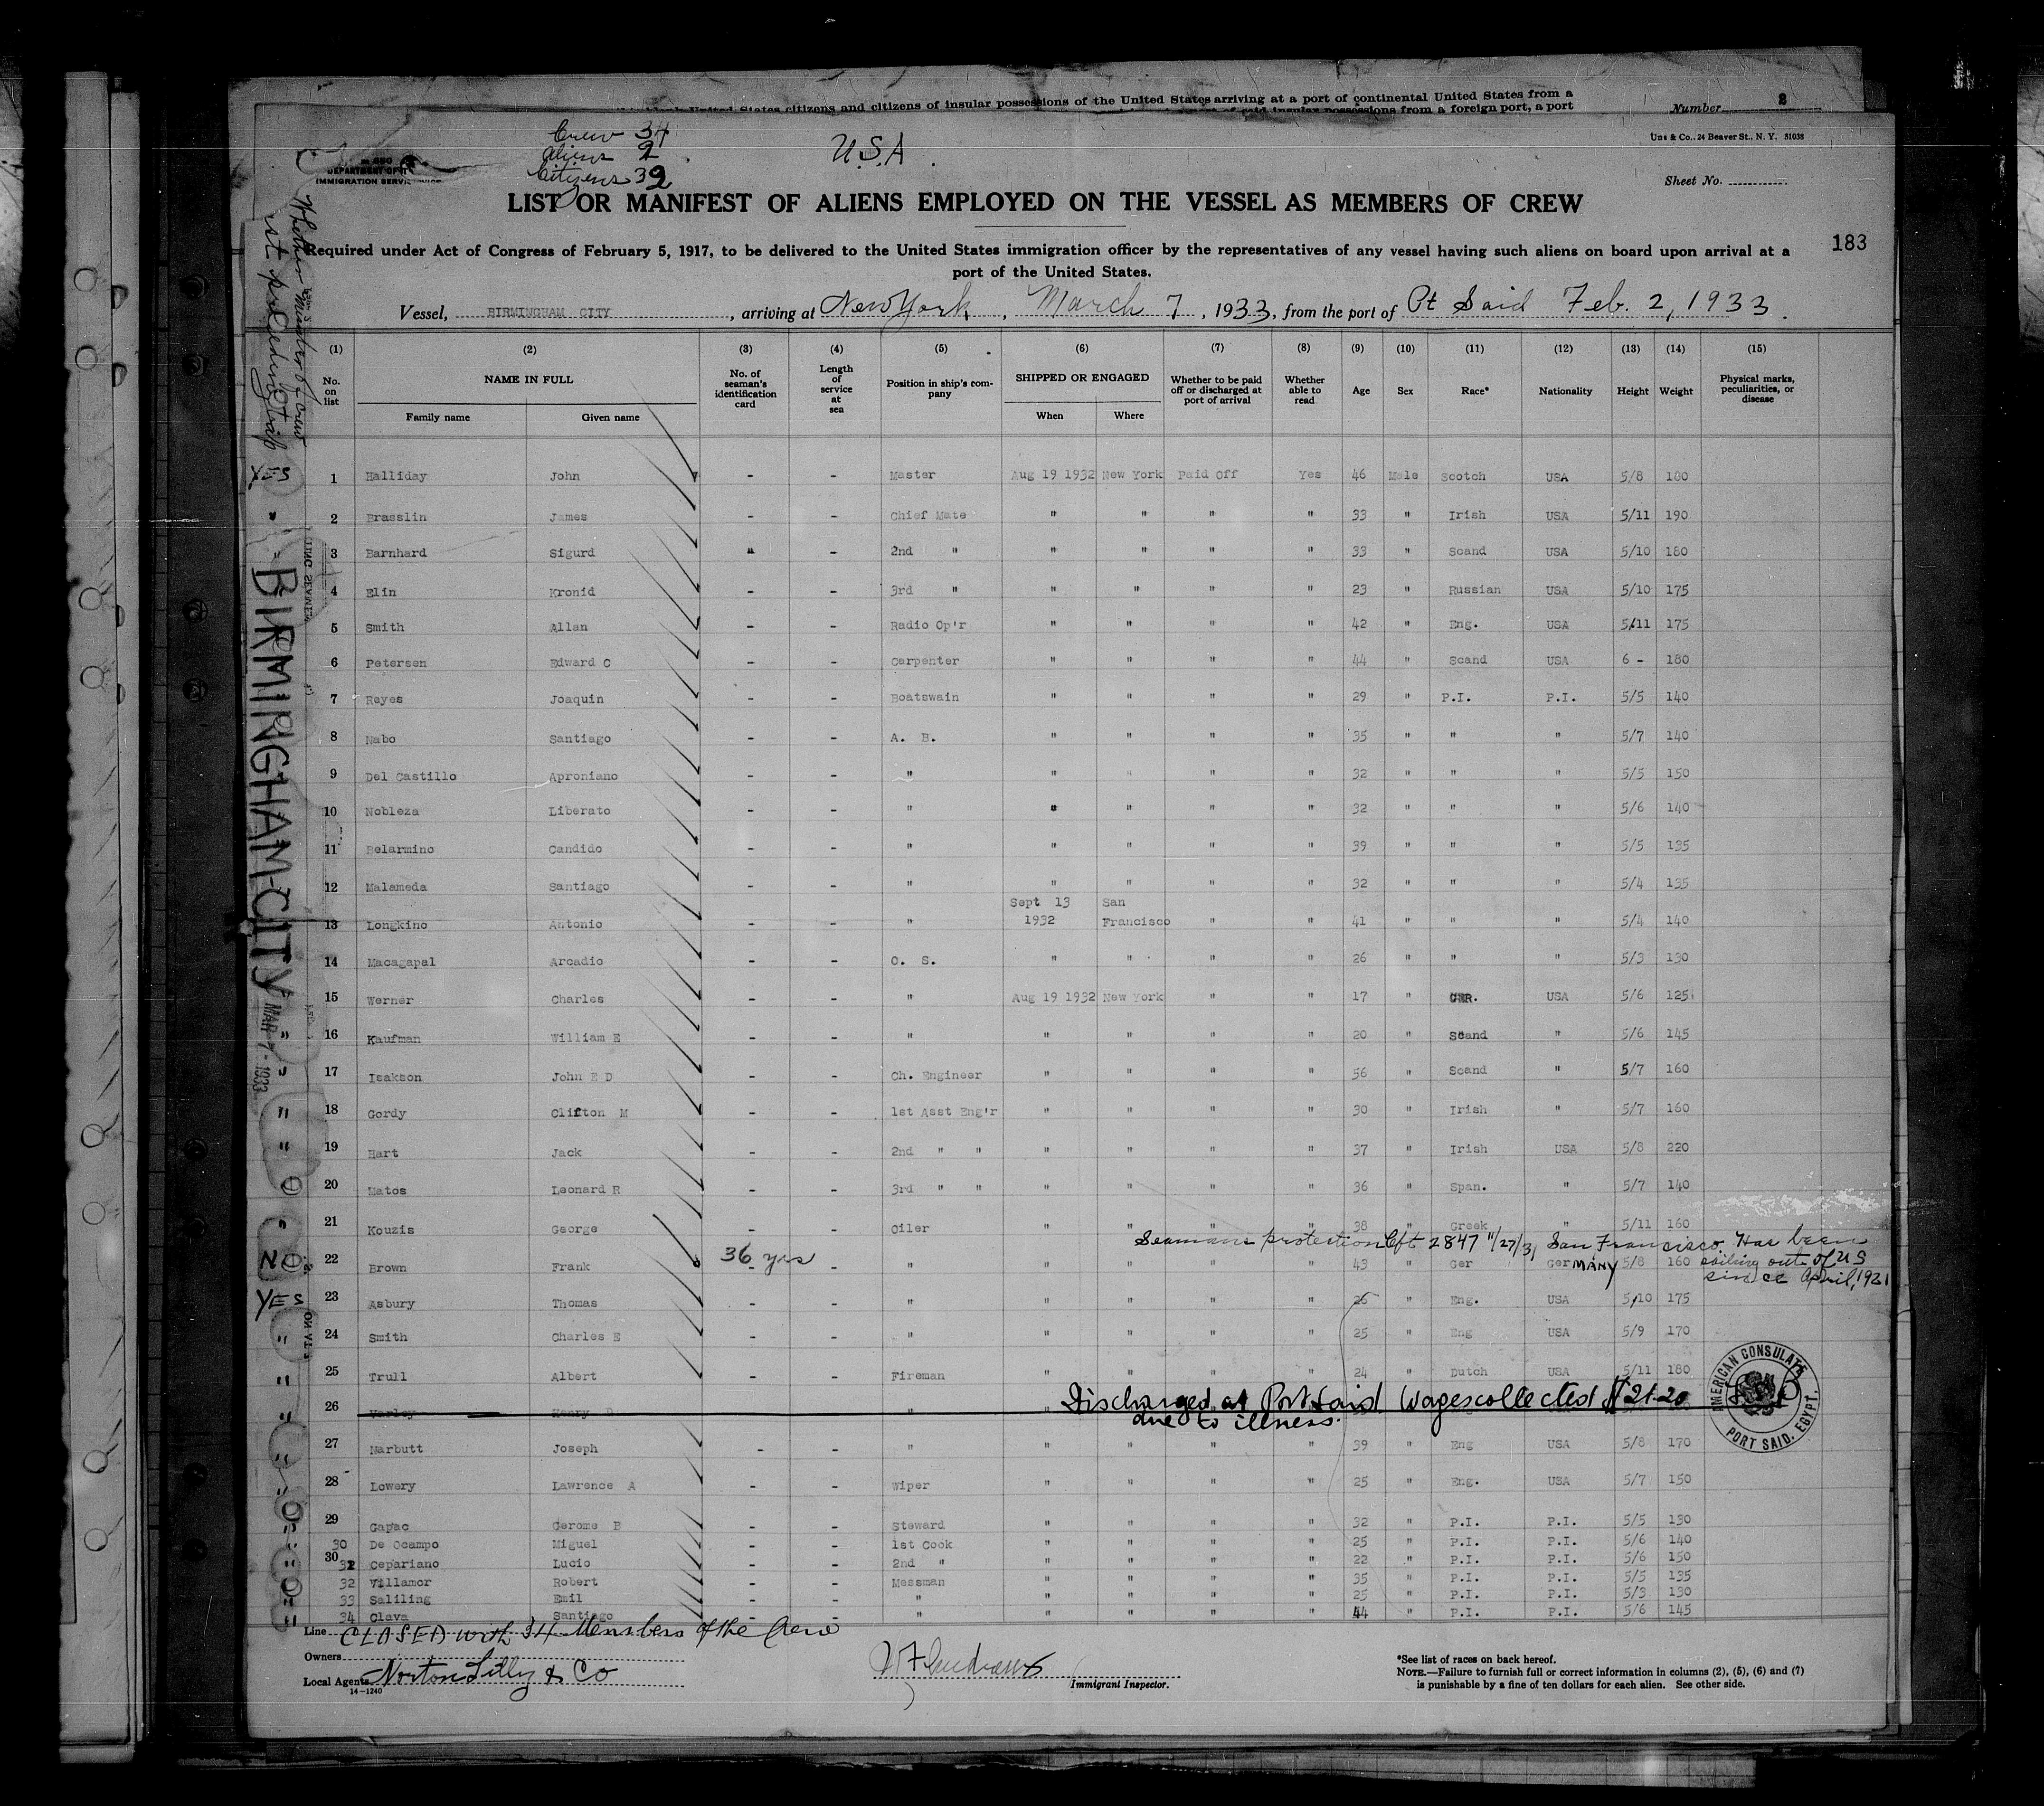 United States citizens and citizens of insular possessions of the United States arriving at a port of continental United States from a
possessions from a foreign port, a port
Number 2
Uns & Co., 24 Beaver St., N. Y. 51038
Crew 34
Aliens 2
Citizens 32
U.S.A.
DEPARTMENT OF
IMMIGRATION SERVICE
Sheet No.
LIST OR MANIFEST OF ALIENS EMPLOYED ON THE VESSEL AS MEMBERS OF CREW
183
Required under Act of Congress of February 5, 1917, to be delivered to the United States immigration officer by the representatives of any vessel having such aliens on board upon arrival at a
port of the United States.
Vessel, BIRMINGHAM CITY, arriving at New York, March 7, 1933, from the port of Pt Said Feb. 2, 1933.
Whether member of crew
last preceding trip
BIRMINGHAM-CITY
MAR 7 - 1933
(1) (2) (3) (4) (5) (6) (7) (8) (9) (10) (11) (12) (13) (14) (15)
No. on list
NAME IN FULL
Family name Given name
No. of seaman's identification card
Length of service at sea
Position in ship's company
SHIPPED OR ENGAGED
When Where
Whether to be paid off or discharged at port of arrival
Whether able to read
Age
Sex
Race*
Nationality
Height
Weight
Physical marks, peculiarities, or disease
YES 1 Halliday John - - Master Aug 19 1932 New York Paid Off Yes 46 Male Scotch USA 5/8 180
" 2 Brasslin James - - Chief Mate " " " " 33 " Irish USA 5/11 190
" 3 Barnhard Sigurd " - 2nd " " " " " 33 " Scand USA 5/10 180
4 Elin Kronid - - 3rd " " " " " 23 " Russian USA 5/10 175
5 Smith Allan - - Radio Op'r " " " " 42 " Eng. USA 5/11 175
6 Petersen Edward C - - Carpenter " " " " 44 " Scand USA 6 - 180
7 Reyes Joaquin - - Boatswain " " " " 29 " P.I. P.I. 5/5 140
8 Nabo Santiago - - A. B. " " " " 35 " " " 5/7 140
9 Del Castillo Aproniano - - " " " " " 32 " " " 5/5 150
10 Nobleza Liberato - - " " " " " 32 " " " 5/6 140
11 Belarmino Candido - - " " " " " 39 " " " 5/5 135
12 Malameda Santiago - - " " " " " 32 " " " 5/4 135
13 Longkino Antonio - - " Sept 13 1932 San Francisco " " 41 " " " 5/4 140
14 Macagapal Arcadio - - O. S. " " " " 26 " " " 5/3 130
15 Werner Charles - - " Aug 19 1932 New York " " 17 " GER. USA 5/6 125
" 16 Kaufman William E - - " " " " " 20 " Scand " 5/6 145
" 17 Isakson John E D - - Ch. Engineer " " " " 56 " Scand " 5/7 160
" 18 Gordy Clifton M - - 1st Asst Eng'r " " " " 30 " Irish " 5/7 160
" 19 Hart Jack - - 2nd " " " " " " 37 " Irish USA 5/8 220
" 20 Matos Leonard R - - 3rd " " " " " " 36 " Span. " 5/7 140
" 21 Kouzis George - - Oiler " " " " 38 " Greek " 5/11 160
Seamans protection Cft 2847 11/27/31 San Francisco. Has been
sailing out of U S
since April, 1921
NO 22 Brown Frank 36 yrs - - " " " " " 43 " Ger GerMANY 5/8 160
YES 23 Asbury Thomas - - " " " " " 26 " Eng. USA 5/10 175
" 24 Smith Charles E - - " " " " " 25 " Eng USA 5/9 170
" 25 Trull Albert - - Fireman " " " " 24 " Dutch USA 5/11 180
" 26 Varley Henry D
Discharged at Port Said Wages collected $21.20
due to illness.
AMERICAN CONSULATE
PORT SAID, EGYPT.
" 27 Marbutt Joseph - - " " " " " 39 " Eng USA 5/8 170
" 28 Lowery Lawrence A - - Wiper " " " " 25 " Eng. USA 5/7 150
" 29 Gapac Gerome B - - Steward " " " " 32 " P.I. P.I. 5/5 130
30 De Ocampo Miguel - - 1st Cook " " " " 25 " P.I. P.I. 5/6 140
30 31 Cepariano Lucio - - 2nd " " " " " 22 " P.I. P.I. 5/6 150
32 Villamor Robert - - Messman " " " " 35 " P.I. P.I. 5/5 135
33 Saliling Emil - - " " " " " 25 " P.I. P.I. 5/3 130
34 Clava Santiago - - " " " " " 44 " P.I. P.I. 5/6 145
Line CLOSED with 34 Members of the Crew
Owners
Local Agents Norton Lilly & Co
14-1240
Immigrant Inspector.
*See list of races on back hereof.
NOTE.—Failure to furnish full or correct information in columns (2), (5), (6) and (7)
is punishable by a fine of ten dollars for each alien. See other side.